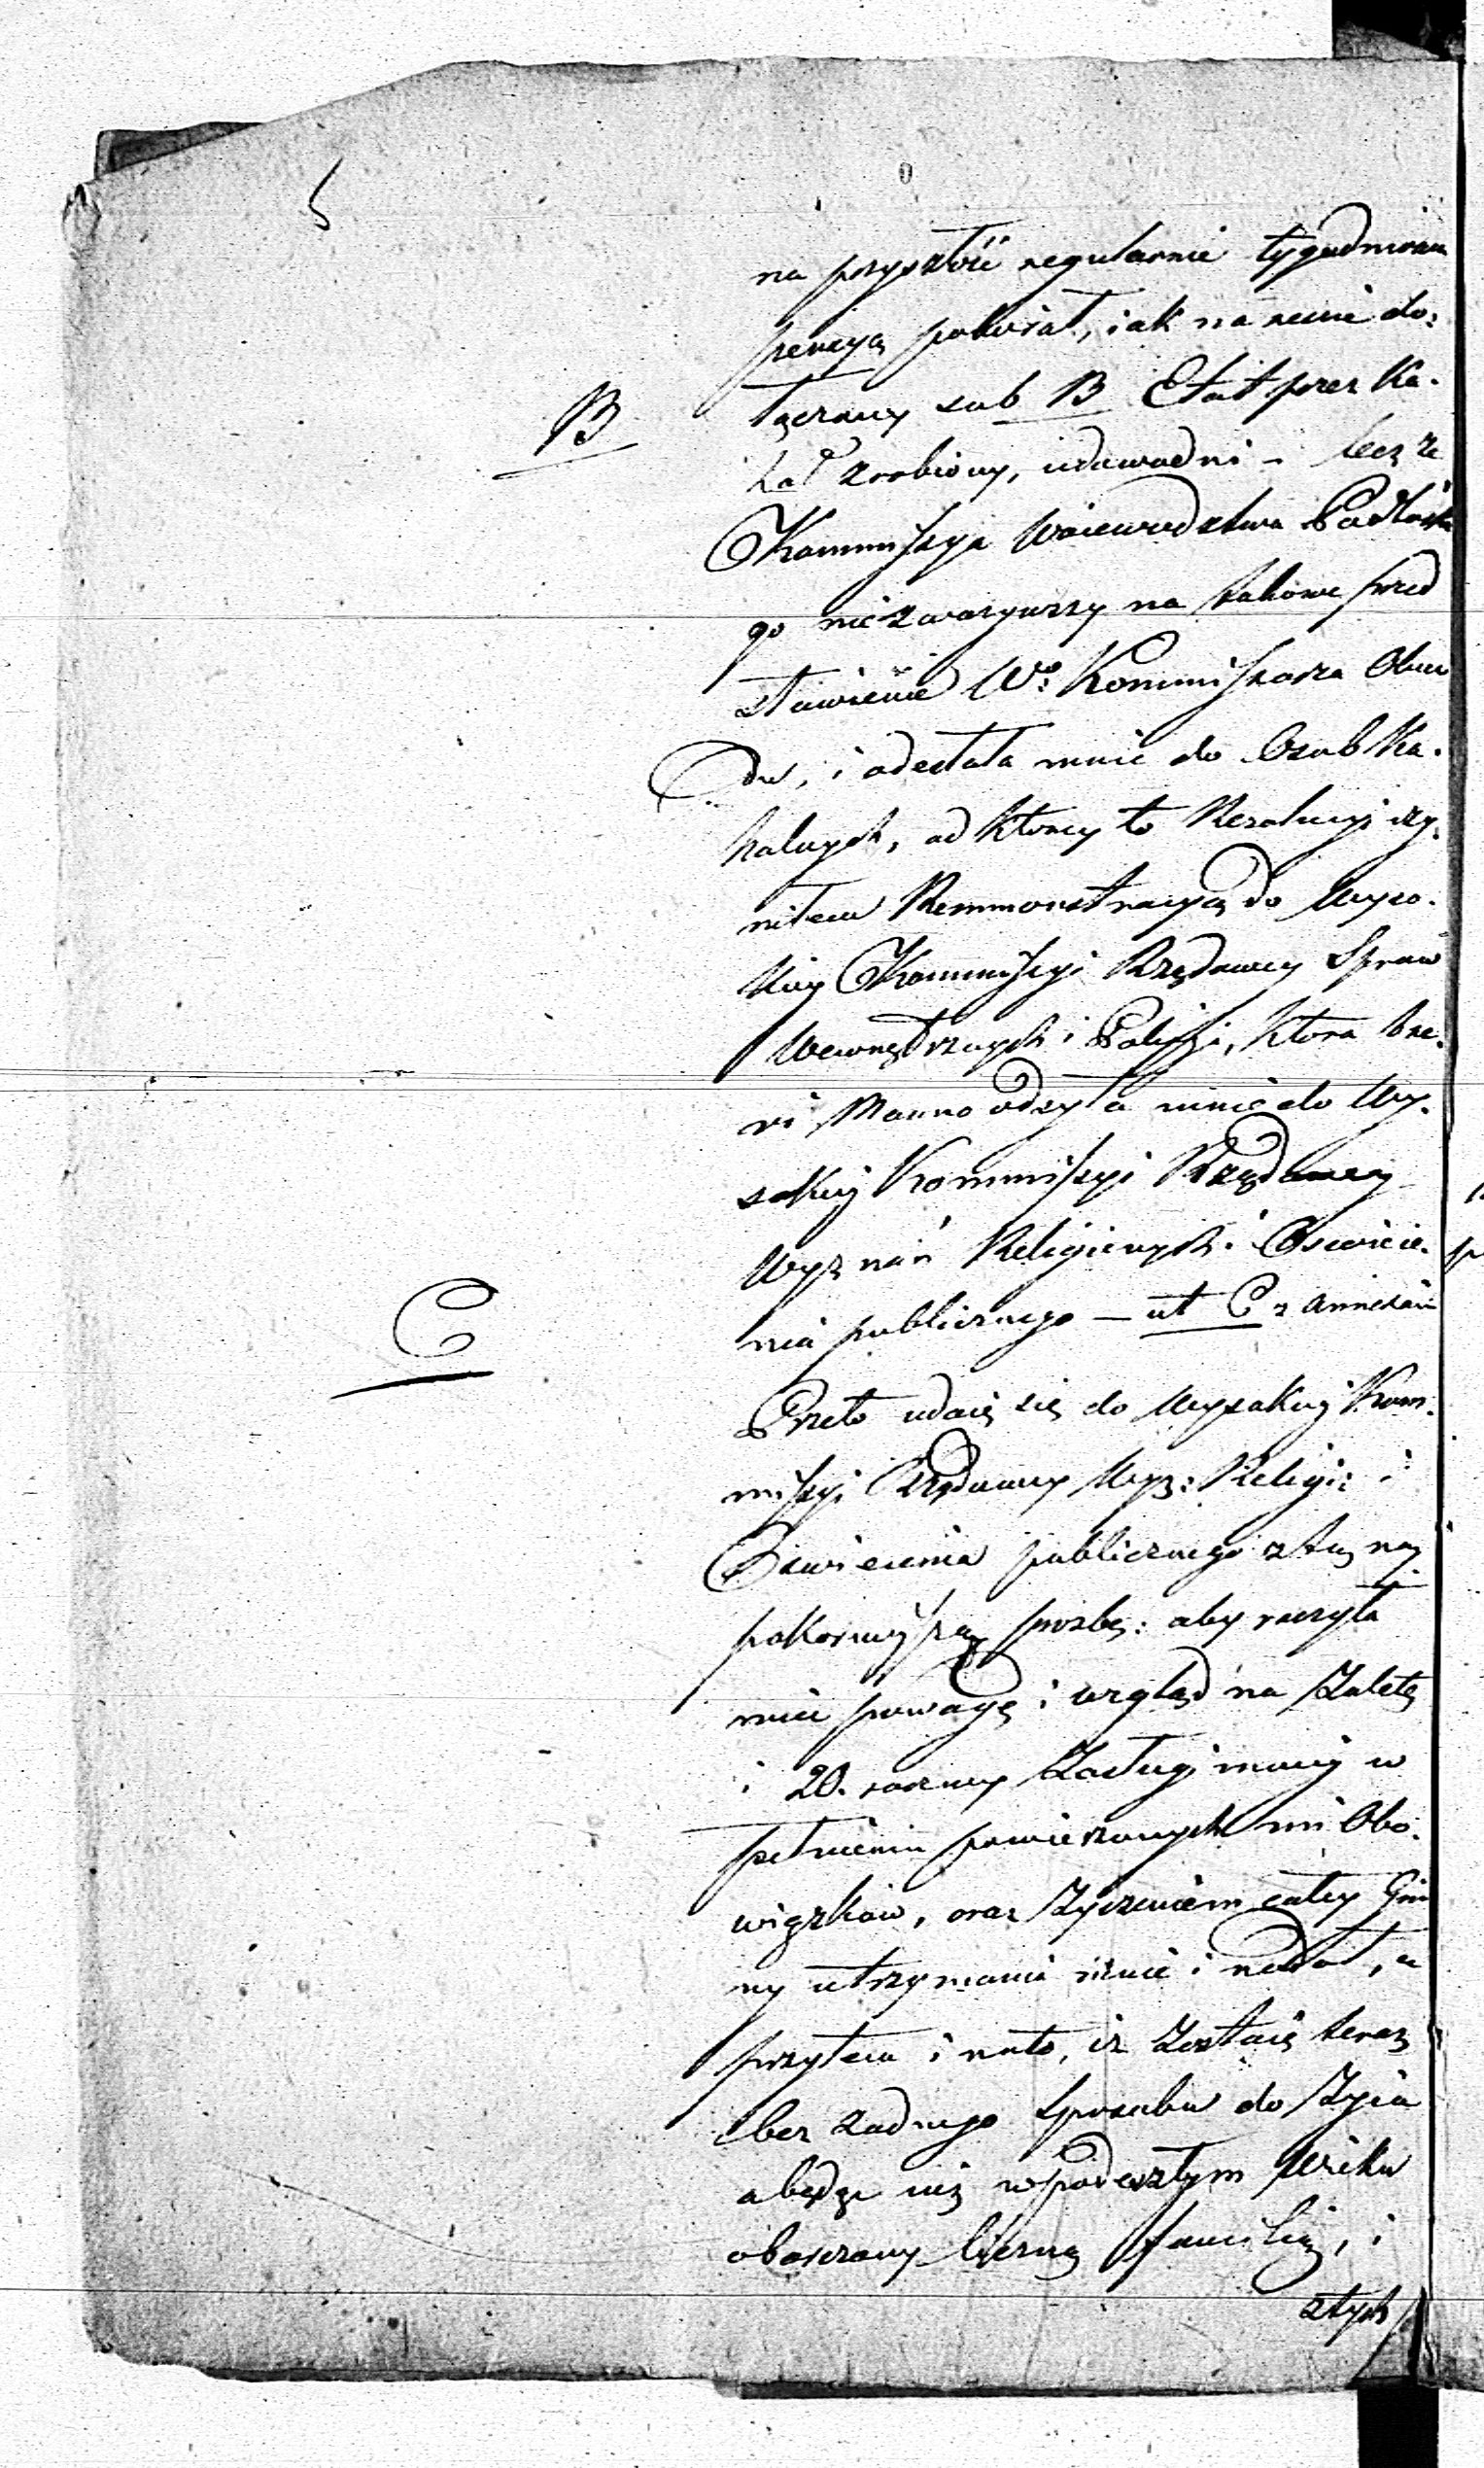 5
na przyszłość regularnie tygodniowa
pensyą pobierał, iak na nowie do=
B
łączony sub B Etat przez Ka-
hał zrobiony, udowodni – lecz że
Kommissya Woiewodztwa Podlaskie
go niezważywszy na takowe przed
stawienie Wo: Kommissarza Obwo
du, i odesłała mnie do Osob Ka-
halnych, od ktorey to Rezolucyi czy-
niłem Remmonstracyą do Wyso-
kiey Kommissyi Rządowey Spraw
Wewnętrznych i Policyi, ktora bre-
vi Manu odsyła mnie do Wy-
sokiey Kommissyi Rządowey
Wyznań Religijnych i Oswiece-
nia publicznego – ut C z annexami
C
Przeto udaię się do Wysokiey Kom-
missyi Rządowey Wyz: Religi: i
Oswiecenia publicznego z tą nay
pokornieyszą prozbą: aby raczyła
mieć powagę i wzgląd na Zaletę
i 20. roczney Zasługi moiey w
pełnieniu powierzonych mi Obo-
wiązków, oraz Życzeniem całey Gmi
ny utrzymania mnie i nadal, a
przytem i na to, iż Zostaię teraz
bez żadnego Sposobu do Życia
a będąc iuż w podeszłym Wieku
obarczony liczną familią, i
z tych